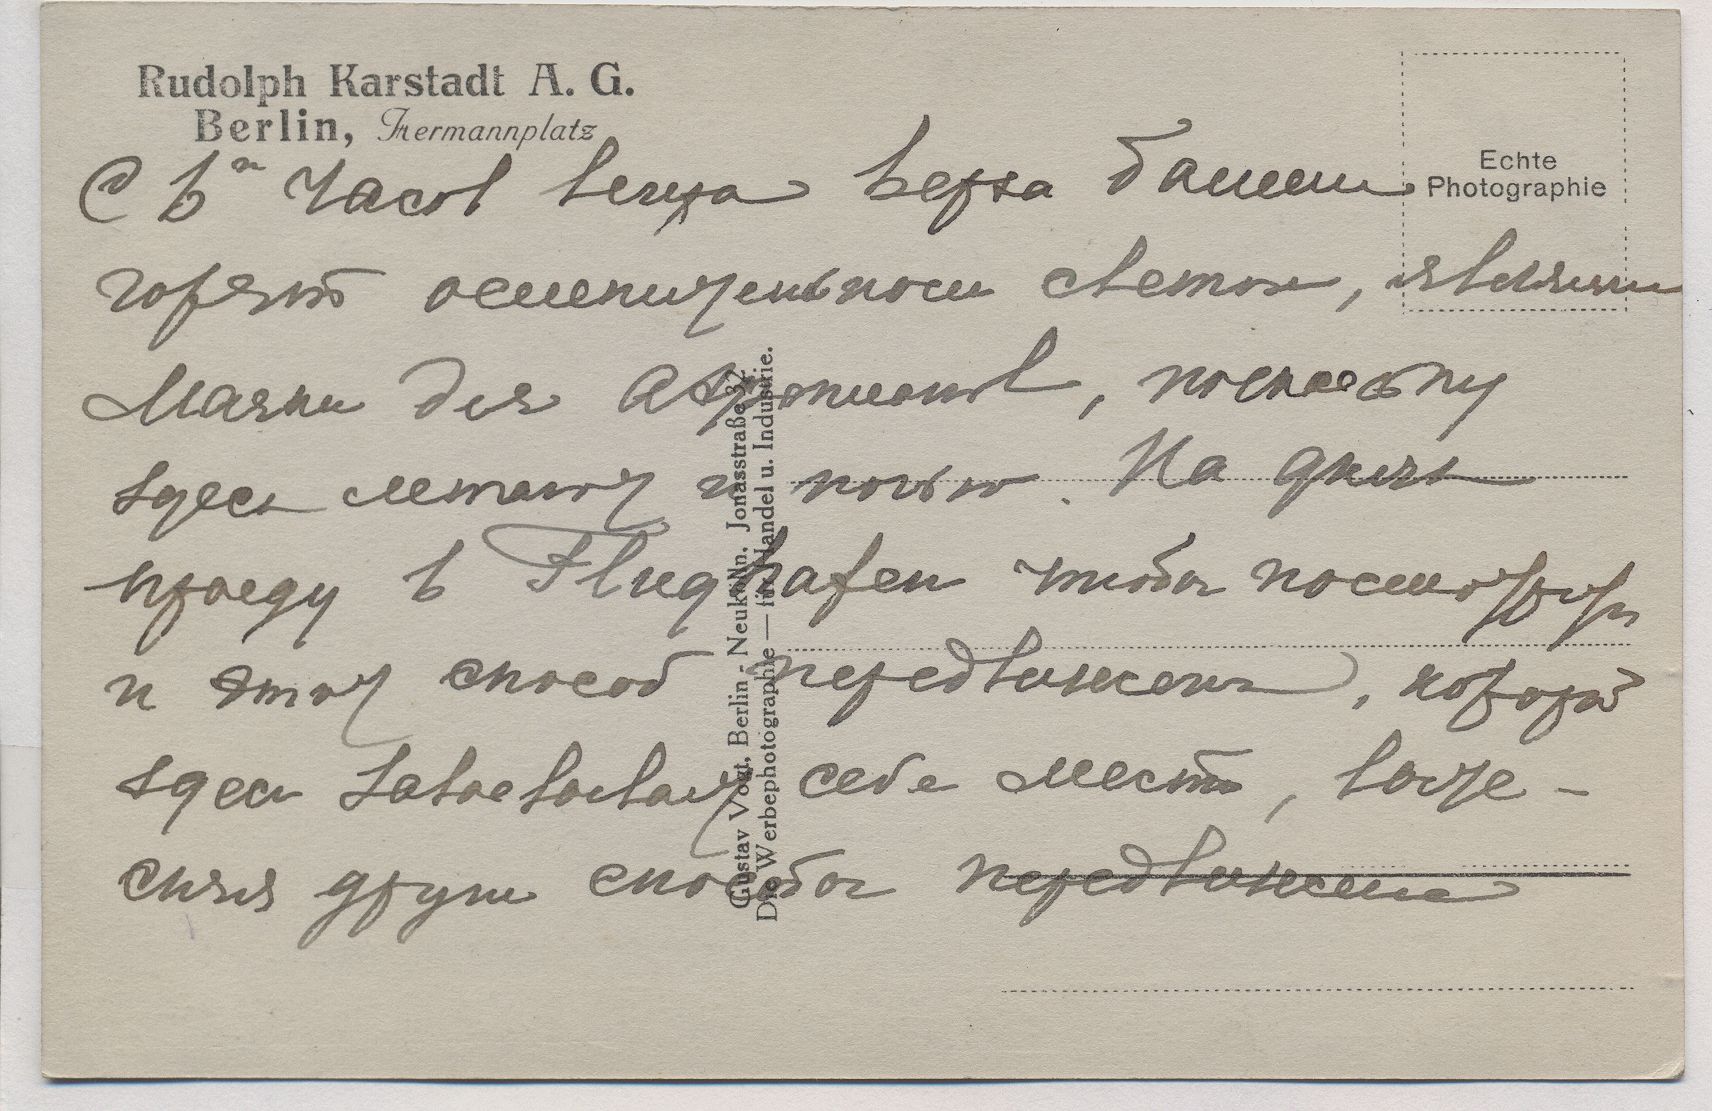 Rudolph Karstadt A. G.
Berlin, Hermannplatz
Echte
Photographie
С 6ти Часов вечера верха башен
горят ослепительном светом, являясь
Маяки для Аэропланов, поскольку
здесь летают и ночью. На днях
проеду в Flughafen чтобы посмотреть
и этот способ передвижения, который
здесь завоевывает себе место, вытес-
няя другие способы передвижения
Gustav Vogt, Berlin-Neukölln, Jonasstraße 32.
Die Werbephotographie — für Handel u. Industrie.